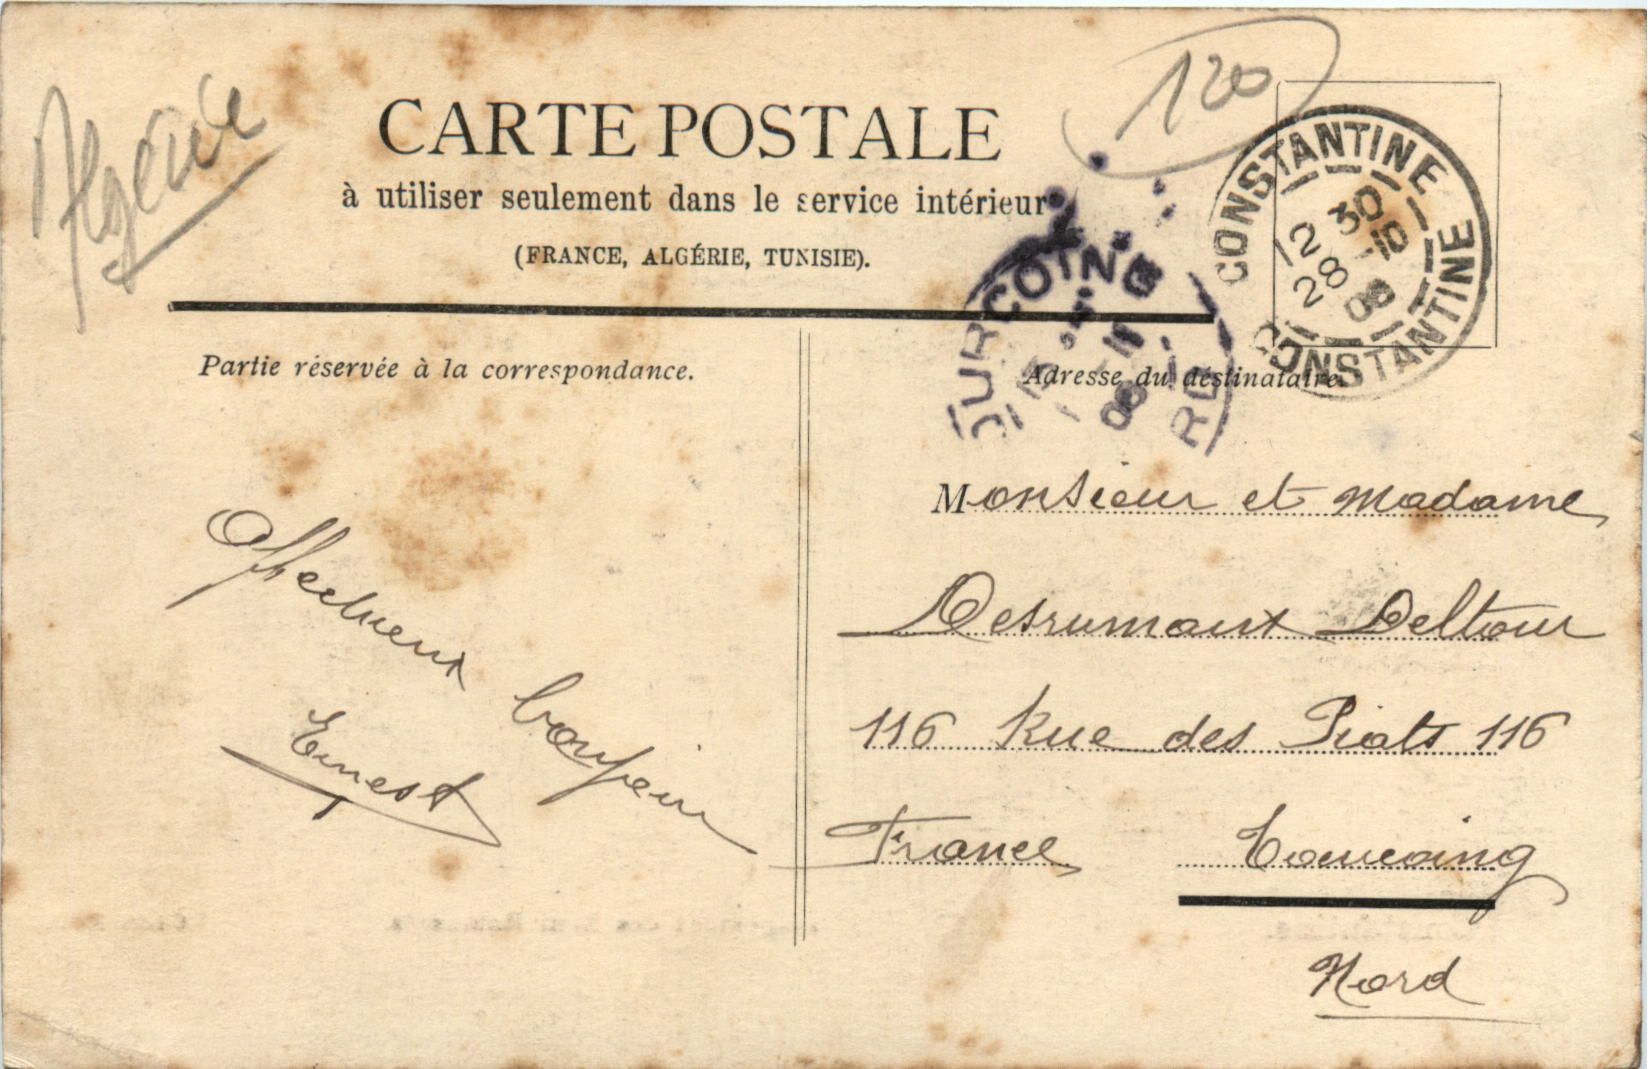 Algérie
120
CARTE POSTALE
à utiliser seulement dans le service intérieur
(FRANCE, ALGÉRIE, TUNISIE).
CONSTANTINE
12 30
28 -10
08
CONSTANTINE
OURCOING
11
08
Partie réservée à la correspondance.
Adresse du destinataire.
Affectueux bonjour
Ernest
Monsieur et Madame
Desrumaux Deltour
116 Rue des Piats 116
France Tourcoing
Nord